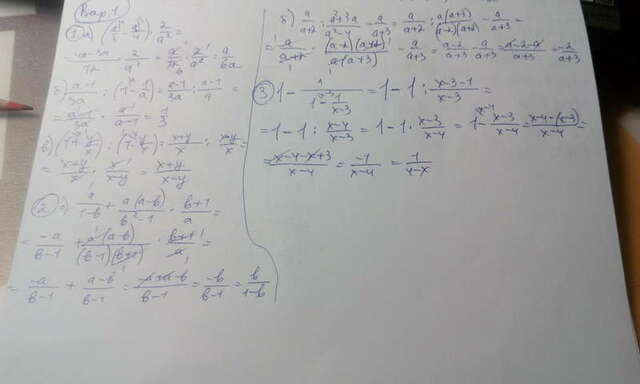 Вар. 1
б) (a-1)/3a : (1-1/a) = (a-1)/3a : (a-1)/a =
= (a-1)/3a · a/(a-1) = 1/3
в) (1+y/x) : (1-y/x) = (x+y)/x : (x-y)/x =
= (x+y)/x · x/(x-y) = (x+y)/(x-y)
② а) a/(1-b) + a(a-b)/(b²-1) · (b+1)/a =
= -a/(b-1) + a(a-b)/((b-1)(b+1)) · (b+1)/a =
= -a/(b-1) + (a-b)/(b-1) = (-a+a-b)/(b-1) = -b/(b-1) = b/(1-b)
б) a/(a+2) : (a²+3a)/(a²-4) - a/(a+3) = a/(a+2) : a(a+3)/((a-2)(a+2)) - a/(a+3) =
= a/(a+2) · (a-2)(a+2)/(a(a+3)) - a/(a+3) = (a-2)/(a+3) - a/(a+3) = (a-2-a)/(a+3) = -2/(a+3)
③ 1 - 1/(1-1/(x-3)) = 1 - 1 : (x-3-1)/(x-3) =
= 1 - 1 : (x-4)/(x-3) = 1 - 1 · (x-3)/(x-4) = 1 - (x-3)/(x-4) = (x-4-(x-3))/(x-4) =
= (x-4-x+3)/(x-4) = -1/(x-4) = 1/(4-x)